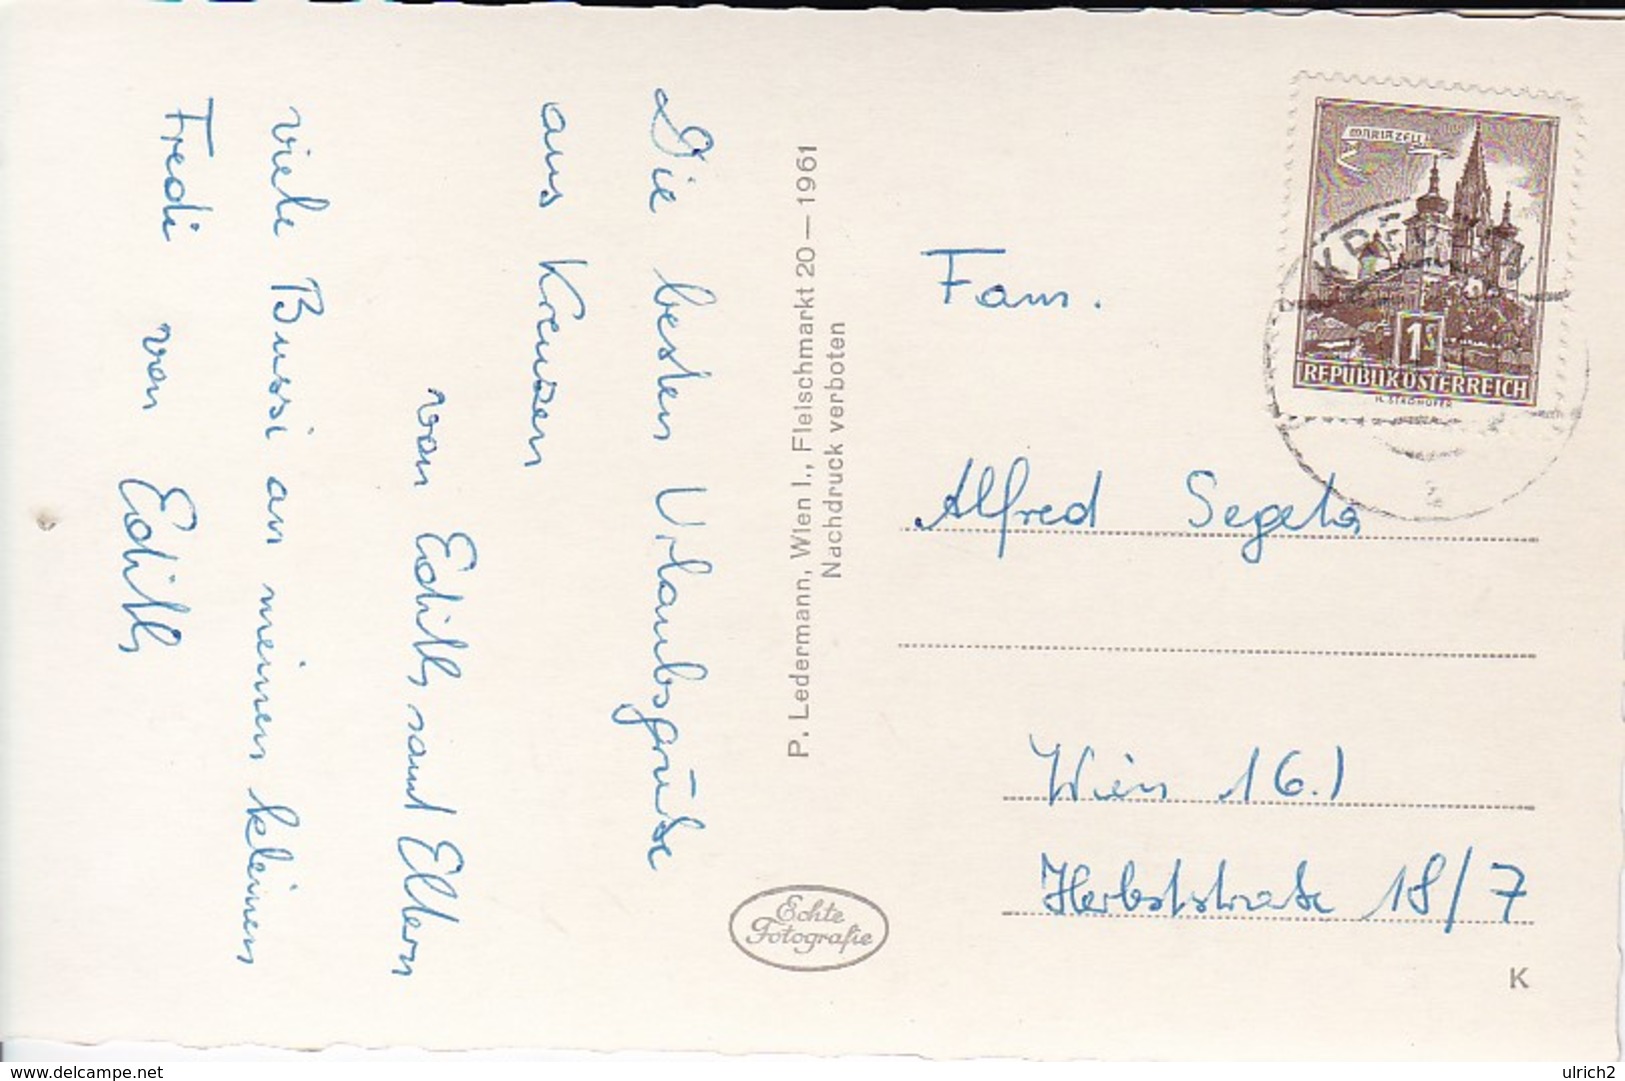 Die besten Urlaubsgrüße
aus Kreuzen
von Edith samt Eltern
viele Bussi an meinen kleinen
Fredi von Edith
P. Ledermann, Wien I., Fleischmarkt 20 — 1961
Nachdruck verboten
Echte
Fotografie
MARIAZELL
KREUZEN
1S
REPUBLIK ÖSTERREICH
Fam.
Alfred Segeta
Wien 16.)
Herbststraße 18/7
K
www.delcampe.net
ulrich2